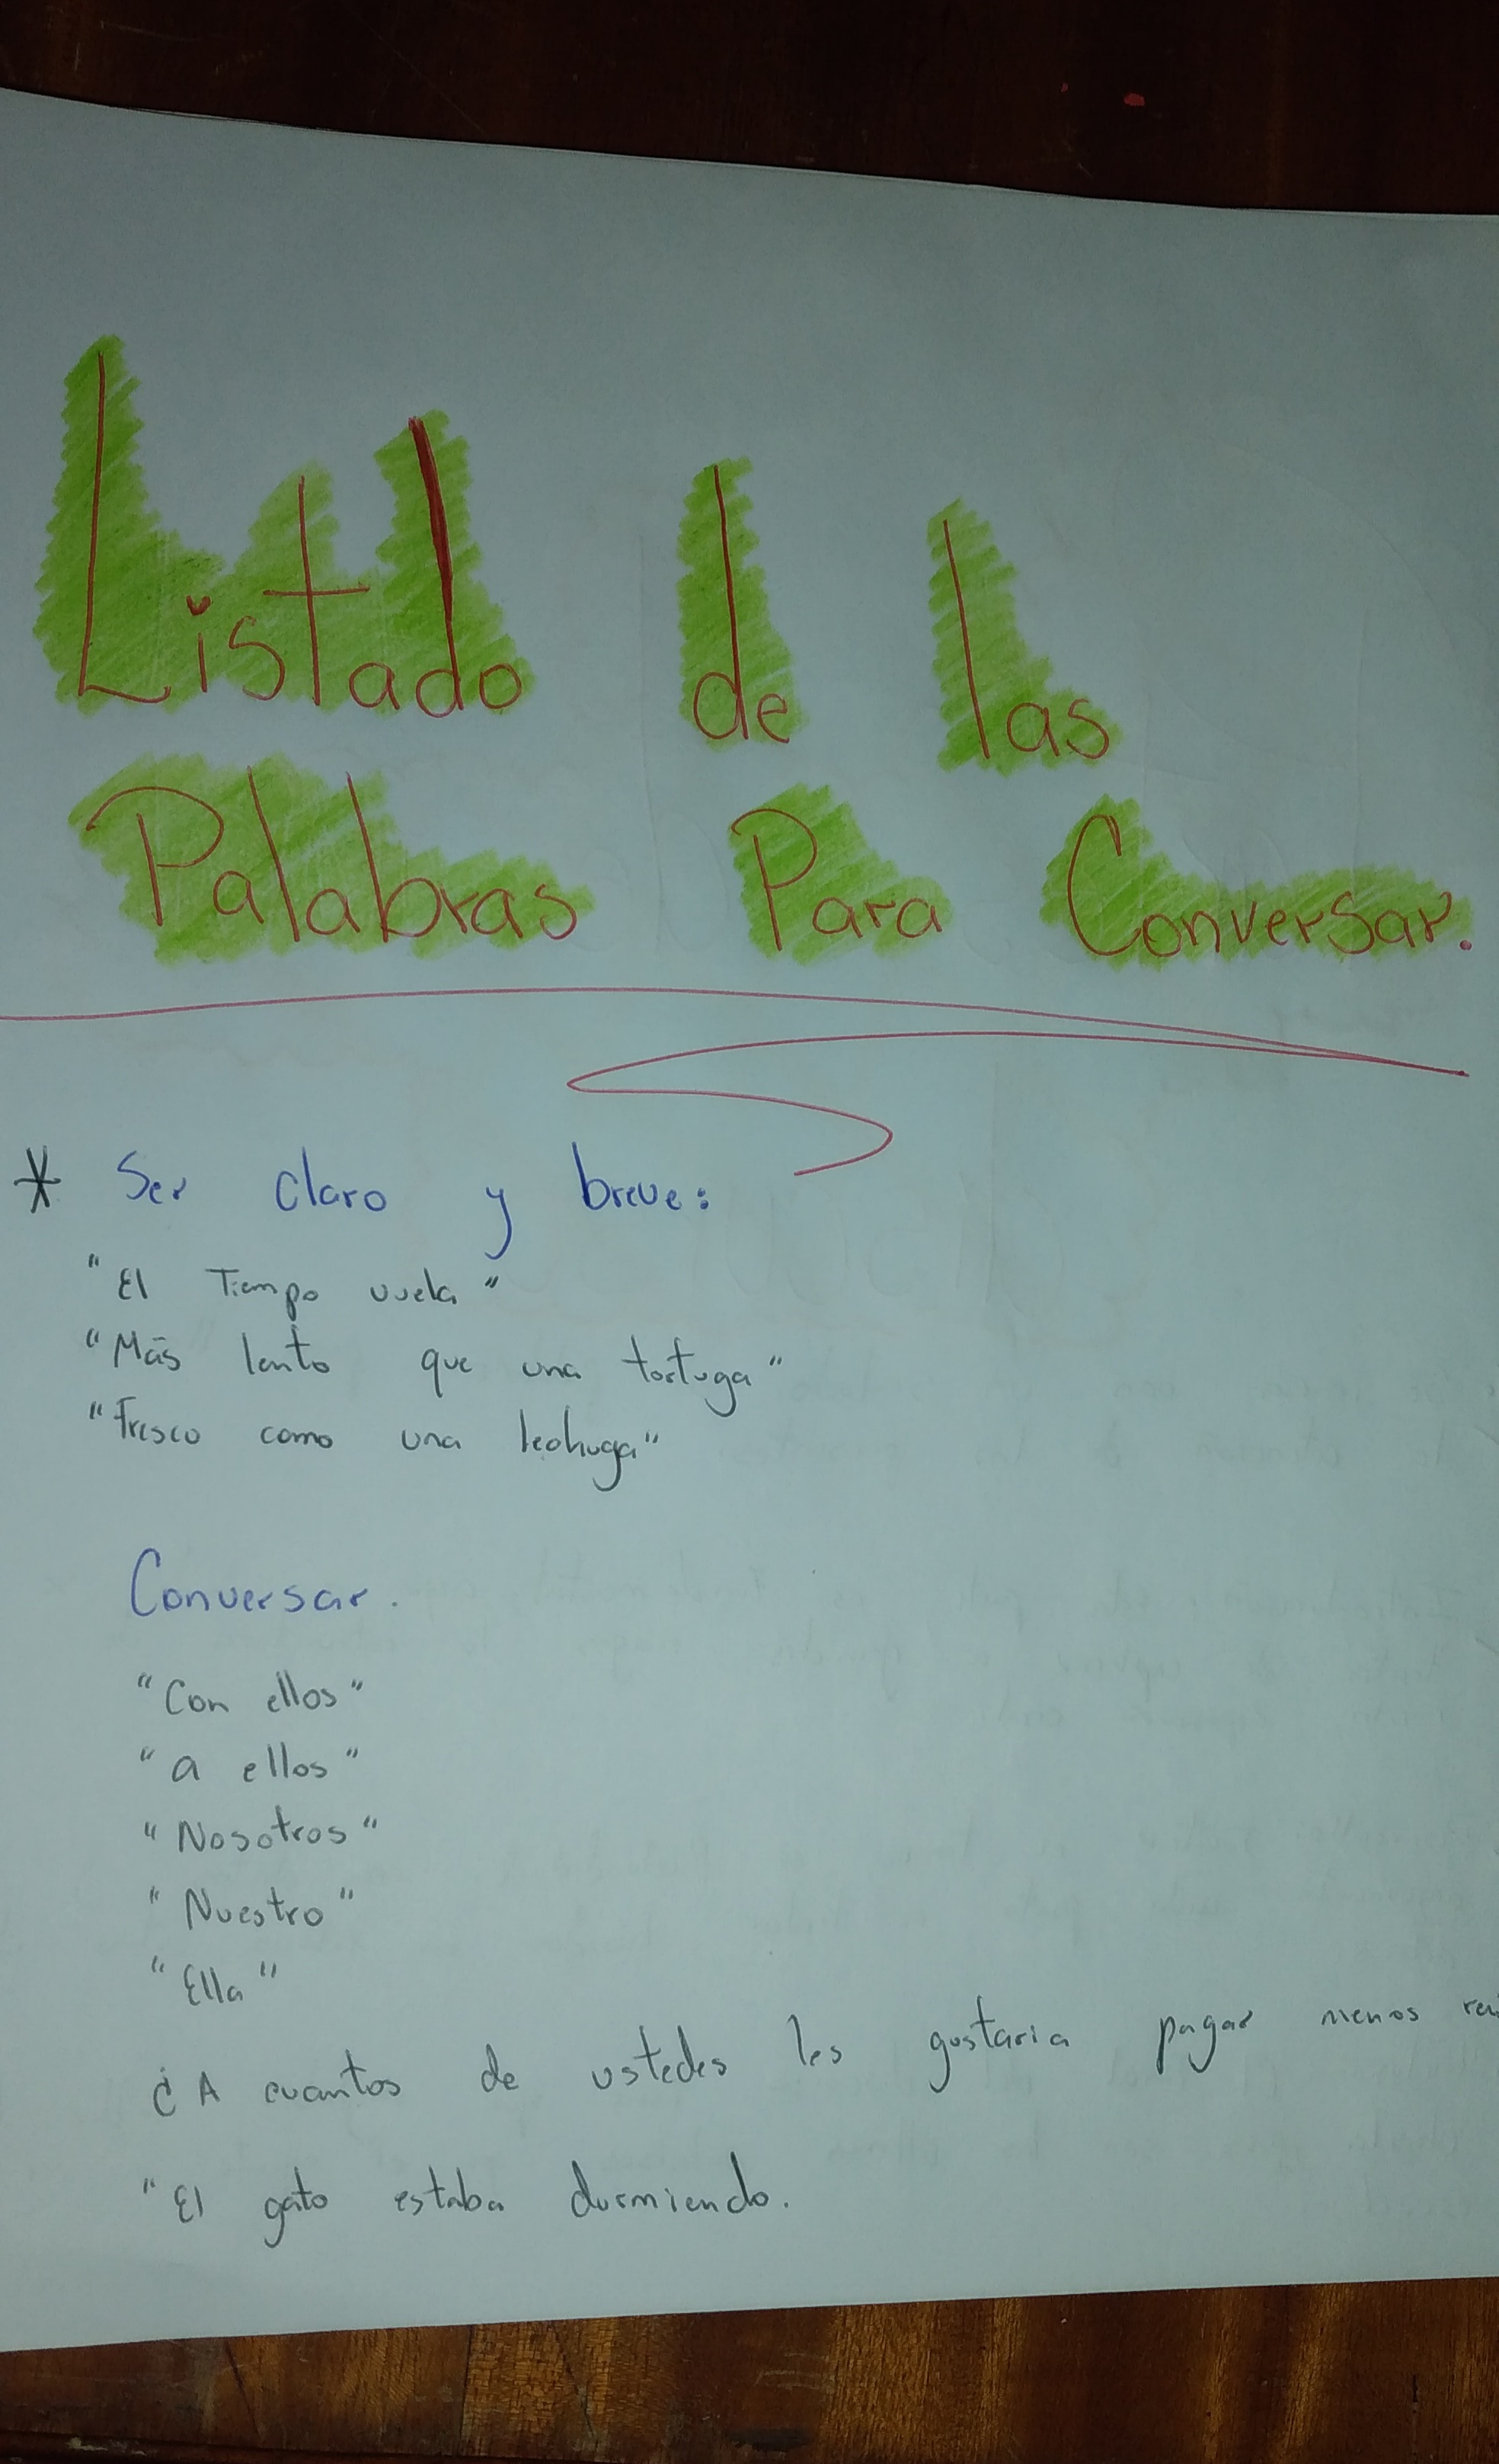 Listado de las
Palabras Para Conversar.
* Ser claro y breve:
"El Tiempo vuela"
"Más lento que una tortuga"
"Fresco como una lechuga"
Conversar.
"Con ellos"
"a ellos"
"Nosotros"
"Nuestro"
"Ella"
¿A cuantos de ustedes les gustaria pagar menos
"El gato estaba durmiendo.